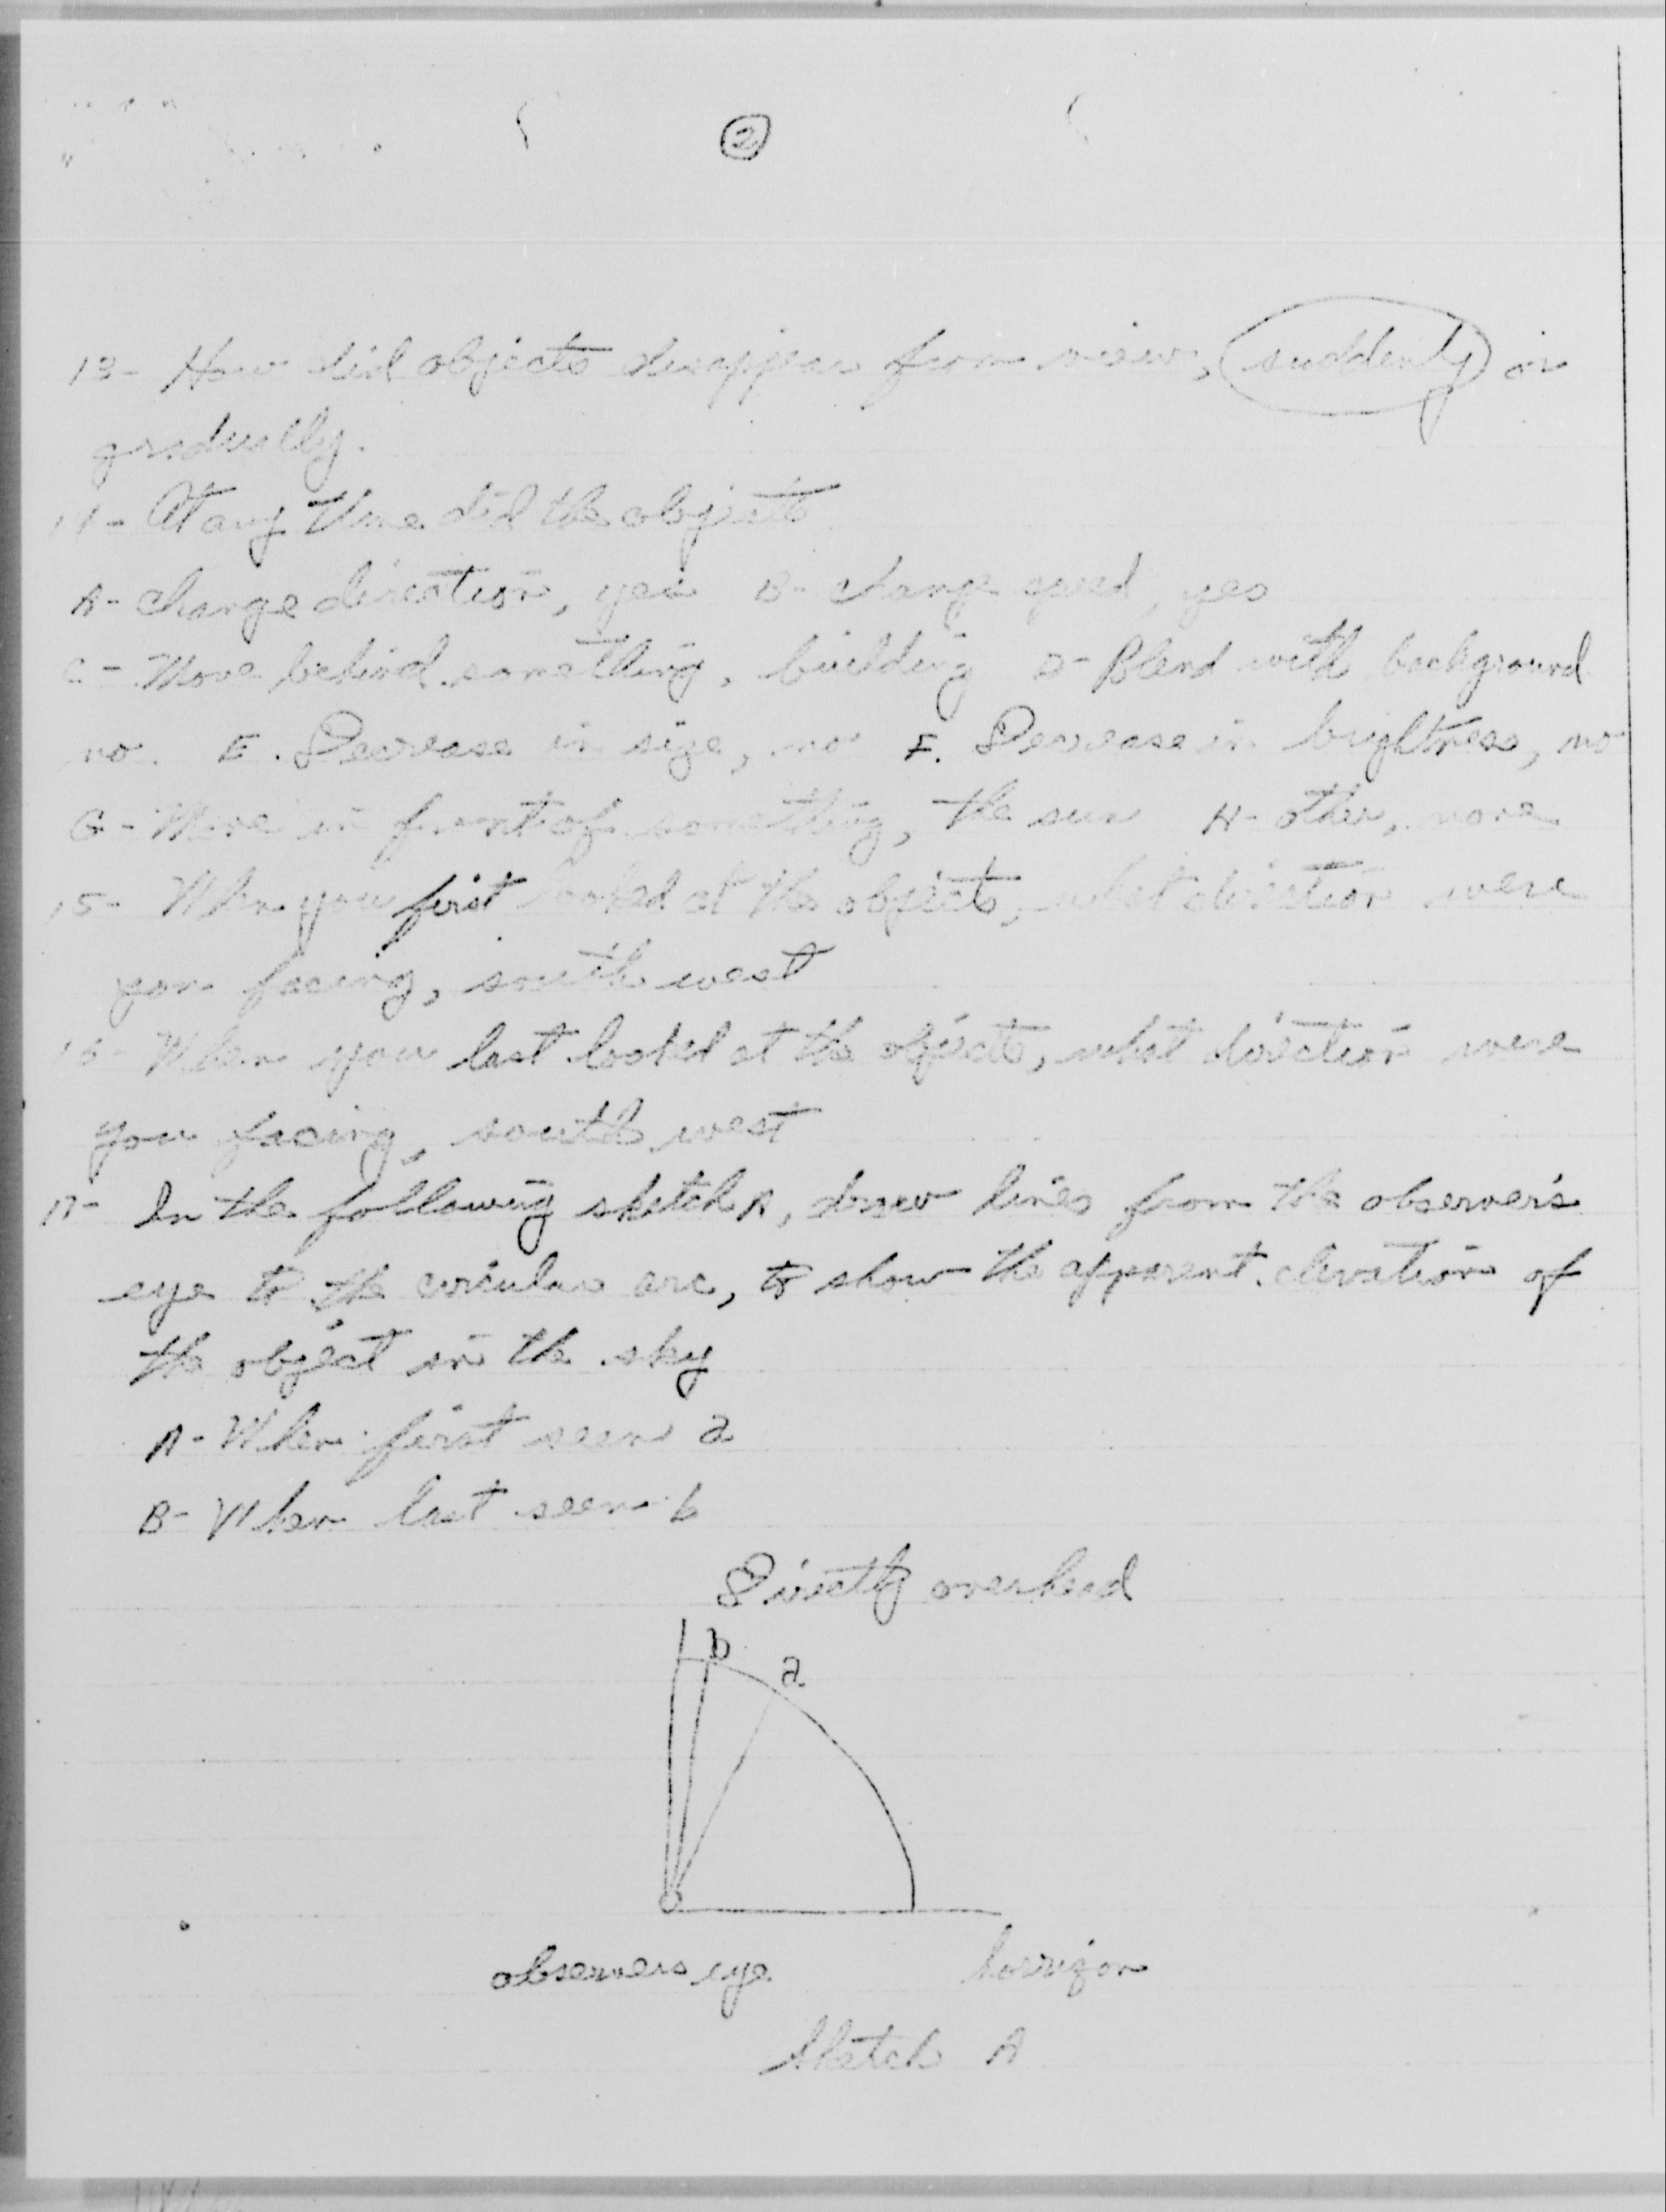 2
13- How did objects disappear from view, suddenly or
gradually.
14- At any time did the objects
A- Change direction, yes B- change speed, yes
C- Move behind something, building D- Blend with background
no. E. Decrease in size, no F. Decrease in brightness, no
G- Move in front of something, the sun H- other, none
15- When you first looked at the objects, what direction were
you facing, south west
16- When you last looked at the objects, what direction were
you facing, south west
17- In the following sketch A, draw lines from the observer's
eye to the circular arc, to show the apparent elevation of
the object in the sky
A- When first seen a
B- When last seen b
Directly overhead
b a
observers eye horrizon
Sketch A